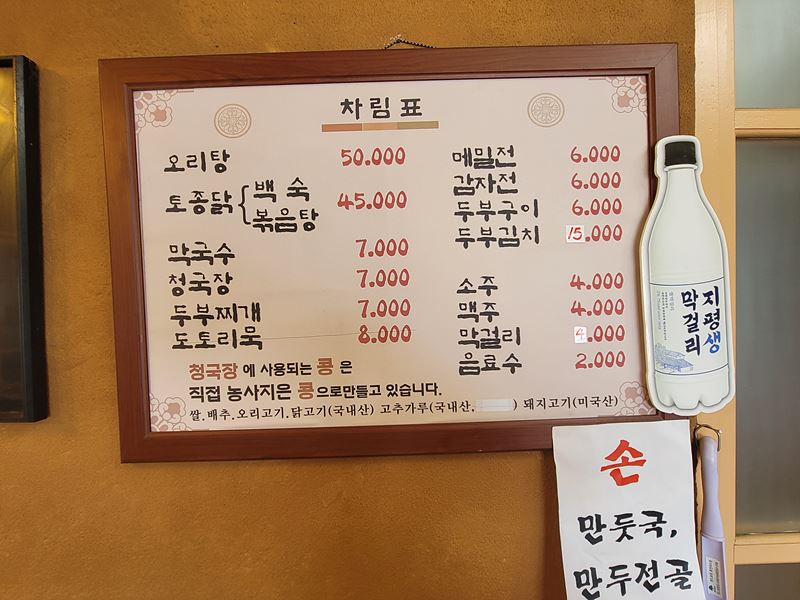 차림표
오리탕 50.000
토종닭 { 백숙 45.000
볶음탕
막국수 7.000
청국장 7.000
두부찌개 7.000
도토리묵 8.000
메밀전 6.000
감자전 6.000
두부구이 6.000
두부김치 15.000
소주 4.000
맥주 4.000
막걸리 4.000
음료수 2.000
청국장에 사용되는 콩은
직접 농사지은 콩으로만들고 있습니다.
쌀.배추.오리고기.닭고기(국내산) 고추가루(국내산, ) 돼지고기(미국산)
지평생
막걸리
손
만둣국,
만두전골